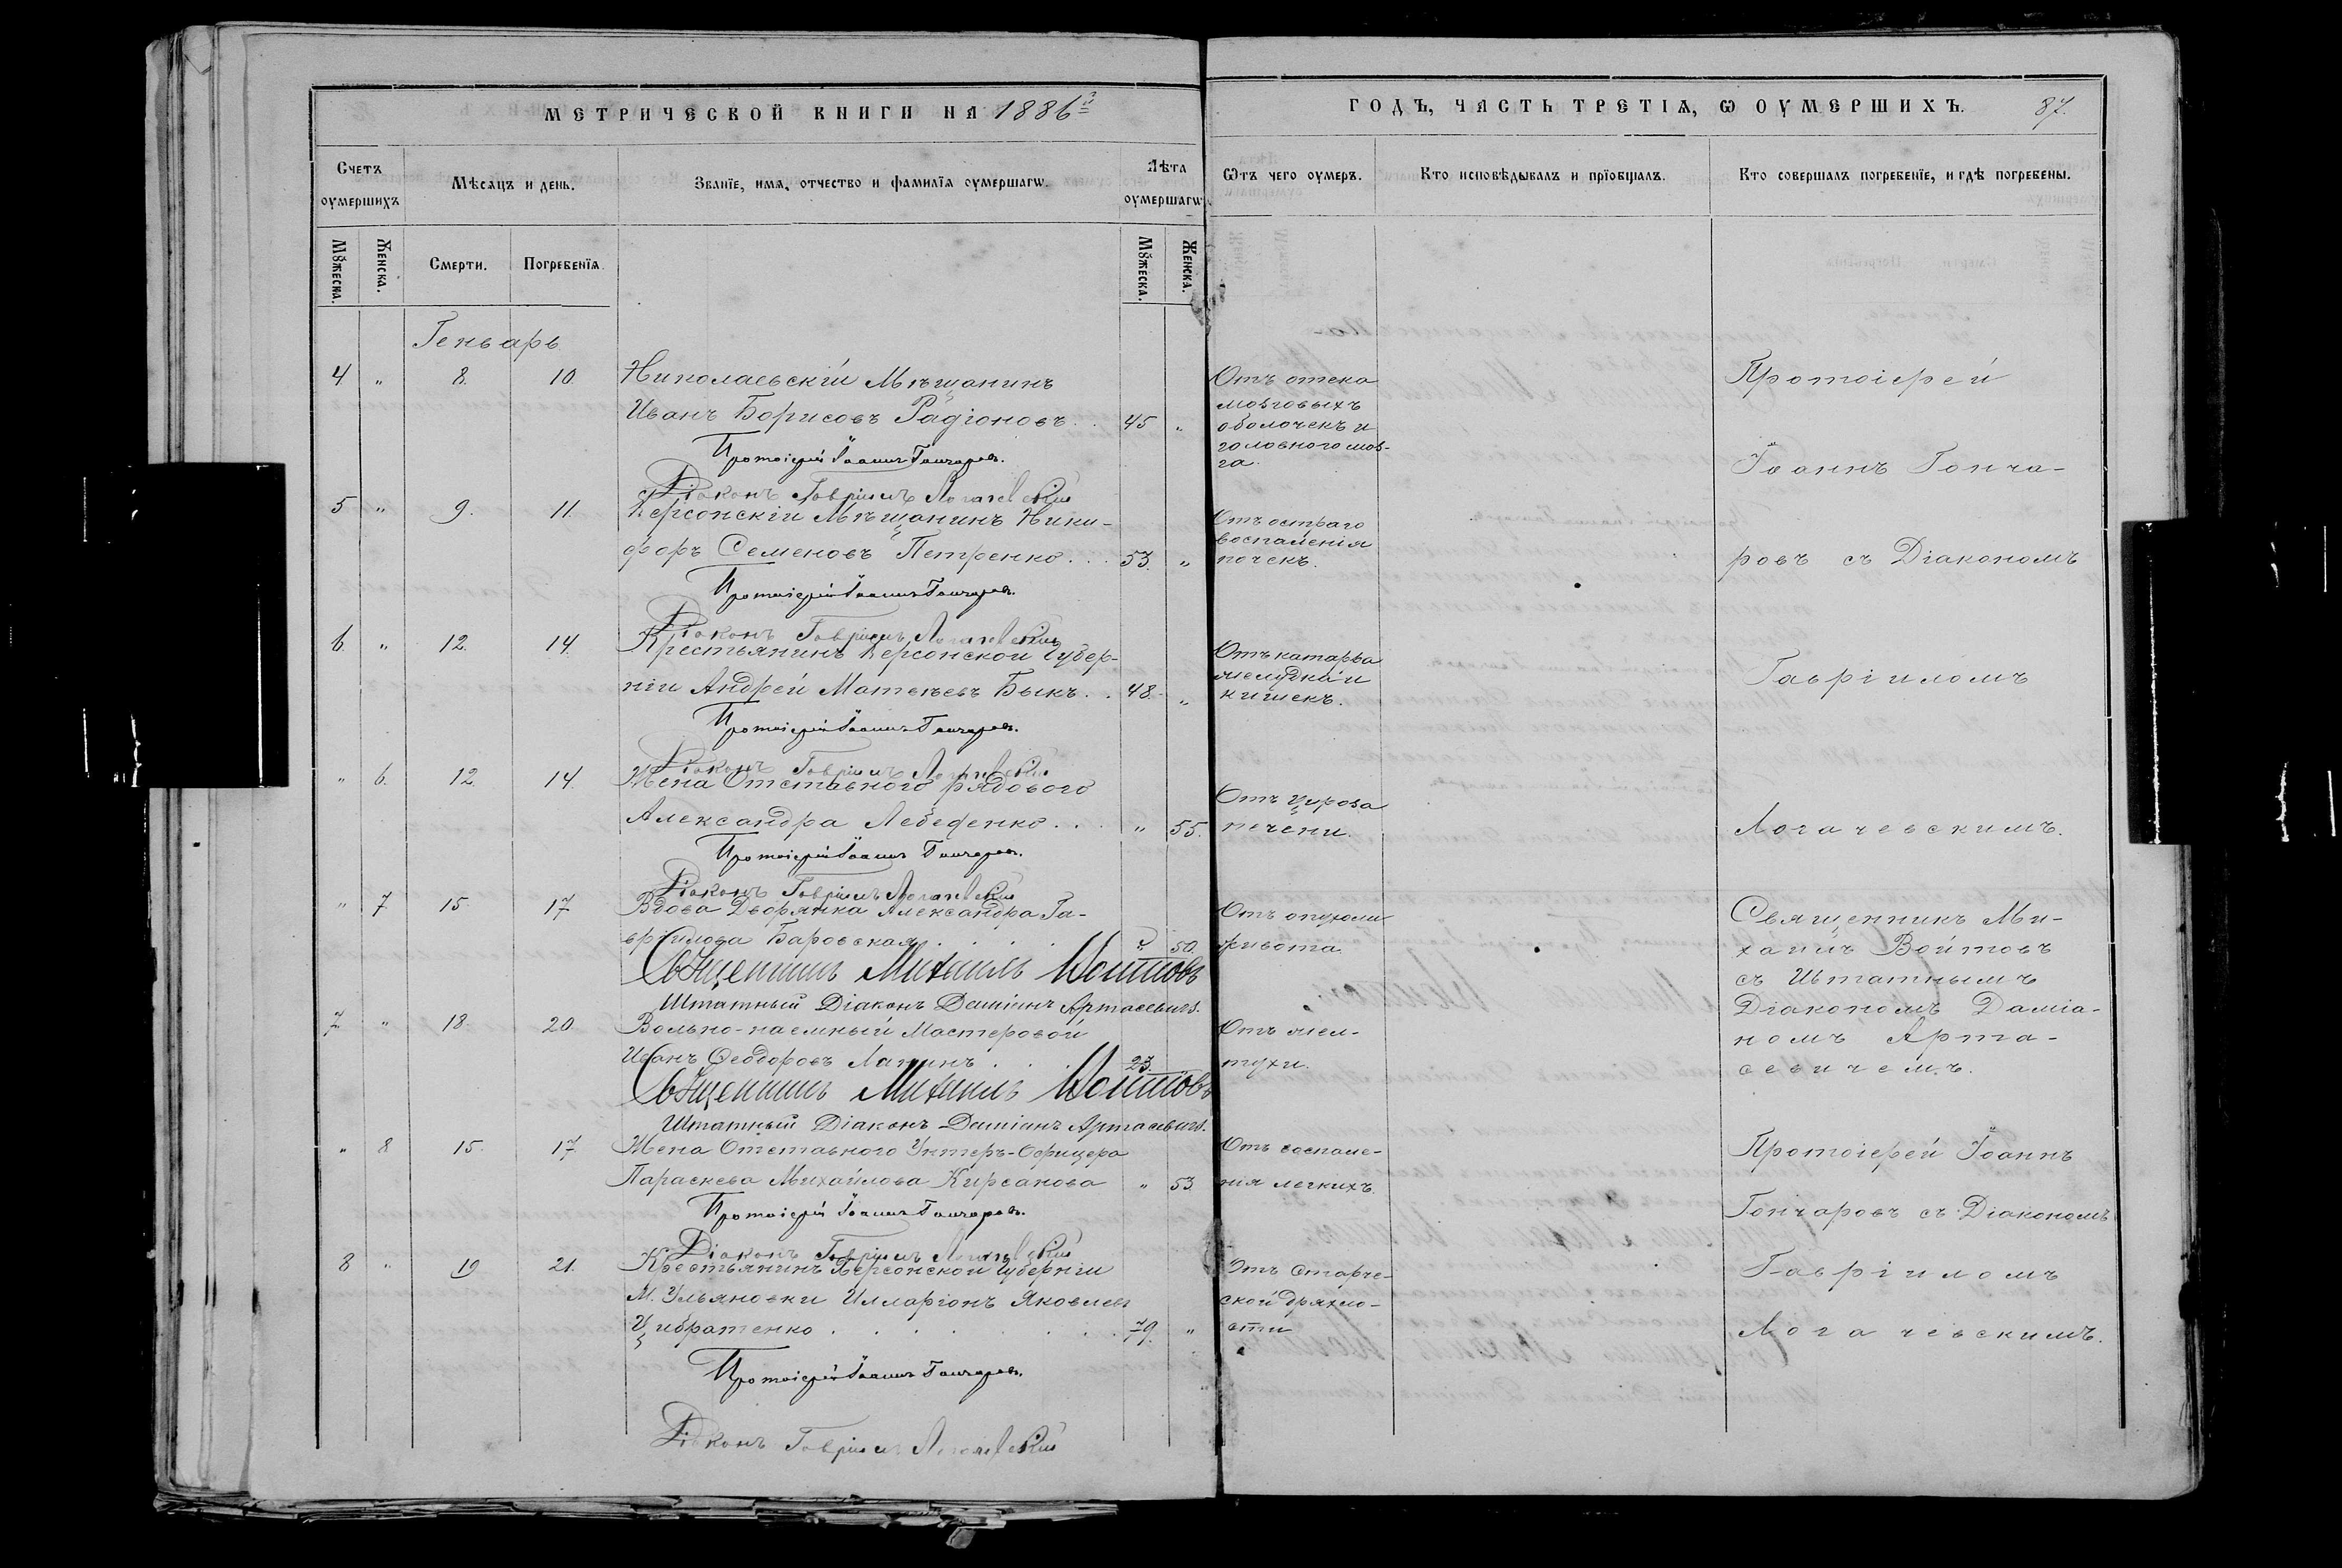 МЕТРИЧЕСКОЙ КНИГИ НА 1886й
ГОДЪ, ЧАСТЬ ТРЕТІѦ, Ѡ ОУМЕРШИХЪ. 87.
Счетъ оумершихъ
Мѣсѧцъ и день.
Званїе, имѧ, отчество и фамилїѧ оумершагѡ.
Лѣта оумершагѡ
Ѿтъ чего оумеръ.
Кто исповѣдывалъ и прїобщалъ.
Кто совершалъ погребенїе, и гдѣ погребены.
Мꙋжеска.
Женска.
Смерти.
Погребенїѧ.
Мꙋжеска.
Женска.
Геньварь
4 " 8. 10. Николаевскій Мѣщанинъ
Иванъ Борисовъ Радіоновъ . . 45 "
Протоіерей Іоаннъ Гончаровъ.
Діаконъ Гавріилъ Логачевскій
Отъ отека
мозговыхъ
оболочекъ и
головного моз-
га.
5 " 9. 11. Херсонскій Мѣщанинъ Ники-
форъ Семеновъ Петренко . . . 53. "
Протоіерей Іоаннъ Гончаровъ.
Діаконъ Гавріилъ Логачевскій
Отъ остраго
воспаленія
почекъ.
6. " 12. 14. Крестьянинъ Херсонской Губер-
ніи Андрей Матвѣевъ Быкъ . . 48. "
Протоіерей Іоаннъ Гончаровъ.
Діаконъ Гавріилъ Логачевскій
Отъ катарра
желудка и
кишекъ.
" 6. 12. 14. Жена Отставного рядового
Александра Лебеденко . . . " 55.
Протоіерей Іоаннъ Гончаровъ.
Діаконъ Гавріилъ Логачевскій
Отъ цироза
печени.
Протоіерей
Іоаннъ Гонча-
ровъ съ Діакономъ
Гавріиломъ
Логачевскимъ.
" 7 15 17 Вдова Дворянка Александра Га-
вріилова Баровская . . . . " 50.
Священникъ Михаилъ Войтовъ
Штатный Діаконъ Даміанъ Артасевичъ.
Отъ опухоли
живота.
7. " 18. 20. Вольно-наемный Мастеровой
Иванъ Ѳеодоровъ Лапинъ . . . 23.
Священникъ Михаилъ Войтовъ
Штатный Діаконъ Даміанъ Артасевичъ.
Отъ жел-
тухи.
Священникъ Ми-
хаилъ Войтовъ
съ Штатнымъ
Діакономъ Даміа-
номъ Арта-
севичемъ.
" 8 15. 17. Жена Отставного Унтеръ-Офицера
Параскева Михайлова Кирсанова " 53.
Протоіерей Іоаннъ Гончаровъ.
Діаконъ Гавріилъ Логачевскій
Отъ воспале-
нія легкихъ.
8 " 19 21. Крестьянинъ Херсонской Губерніи
М. Ульяновки Илларіонъ Яковлевъ
Цибратенко . . . . . . . . . 79. "
Протоіерей Іоаннъ Гончаровъ.
Діаконъ Гавріилъ Логачевскій
Отъ старче-
ской дряхло-
сти
Протоіерей Іоаннъ
Гончаровъ съ Діакономъ
Гавріиломъ
Логачевскимъ.